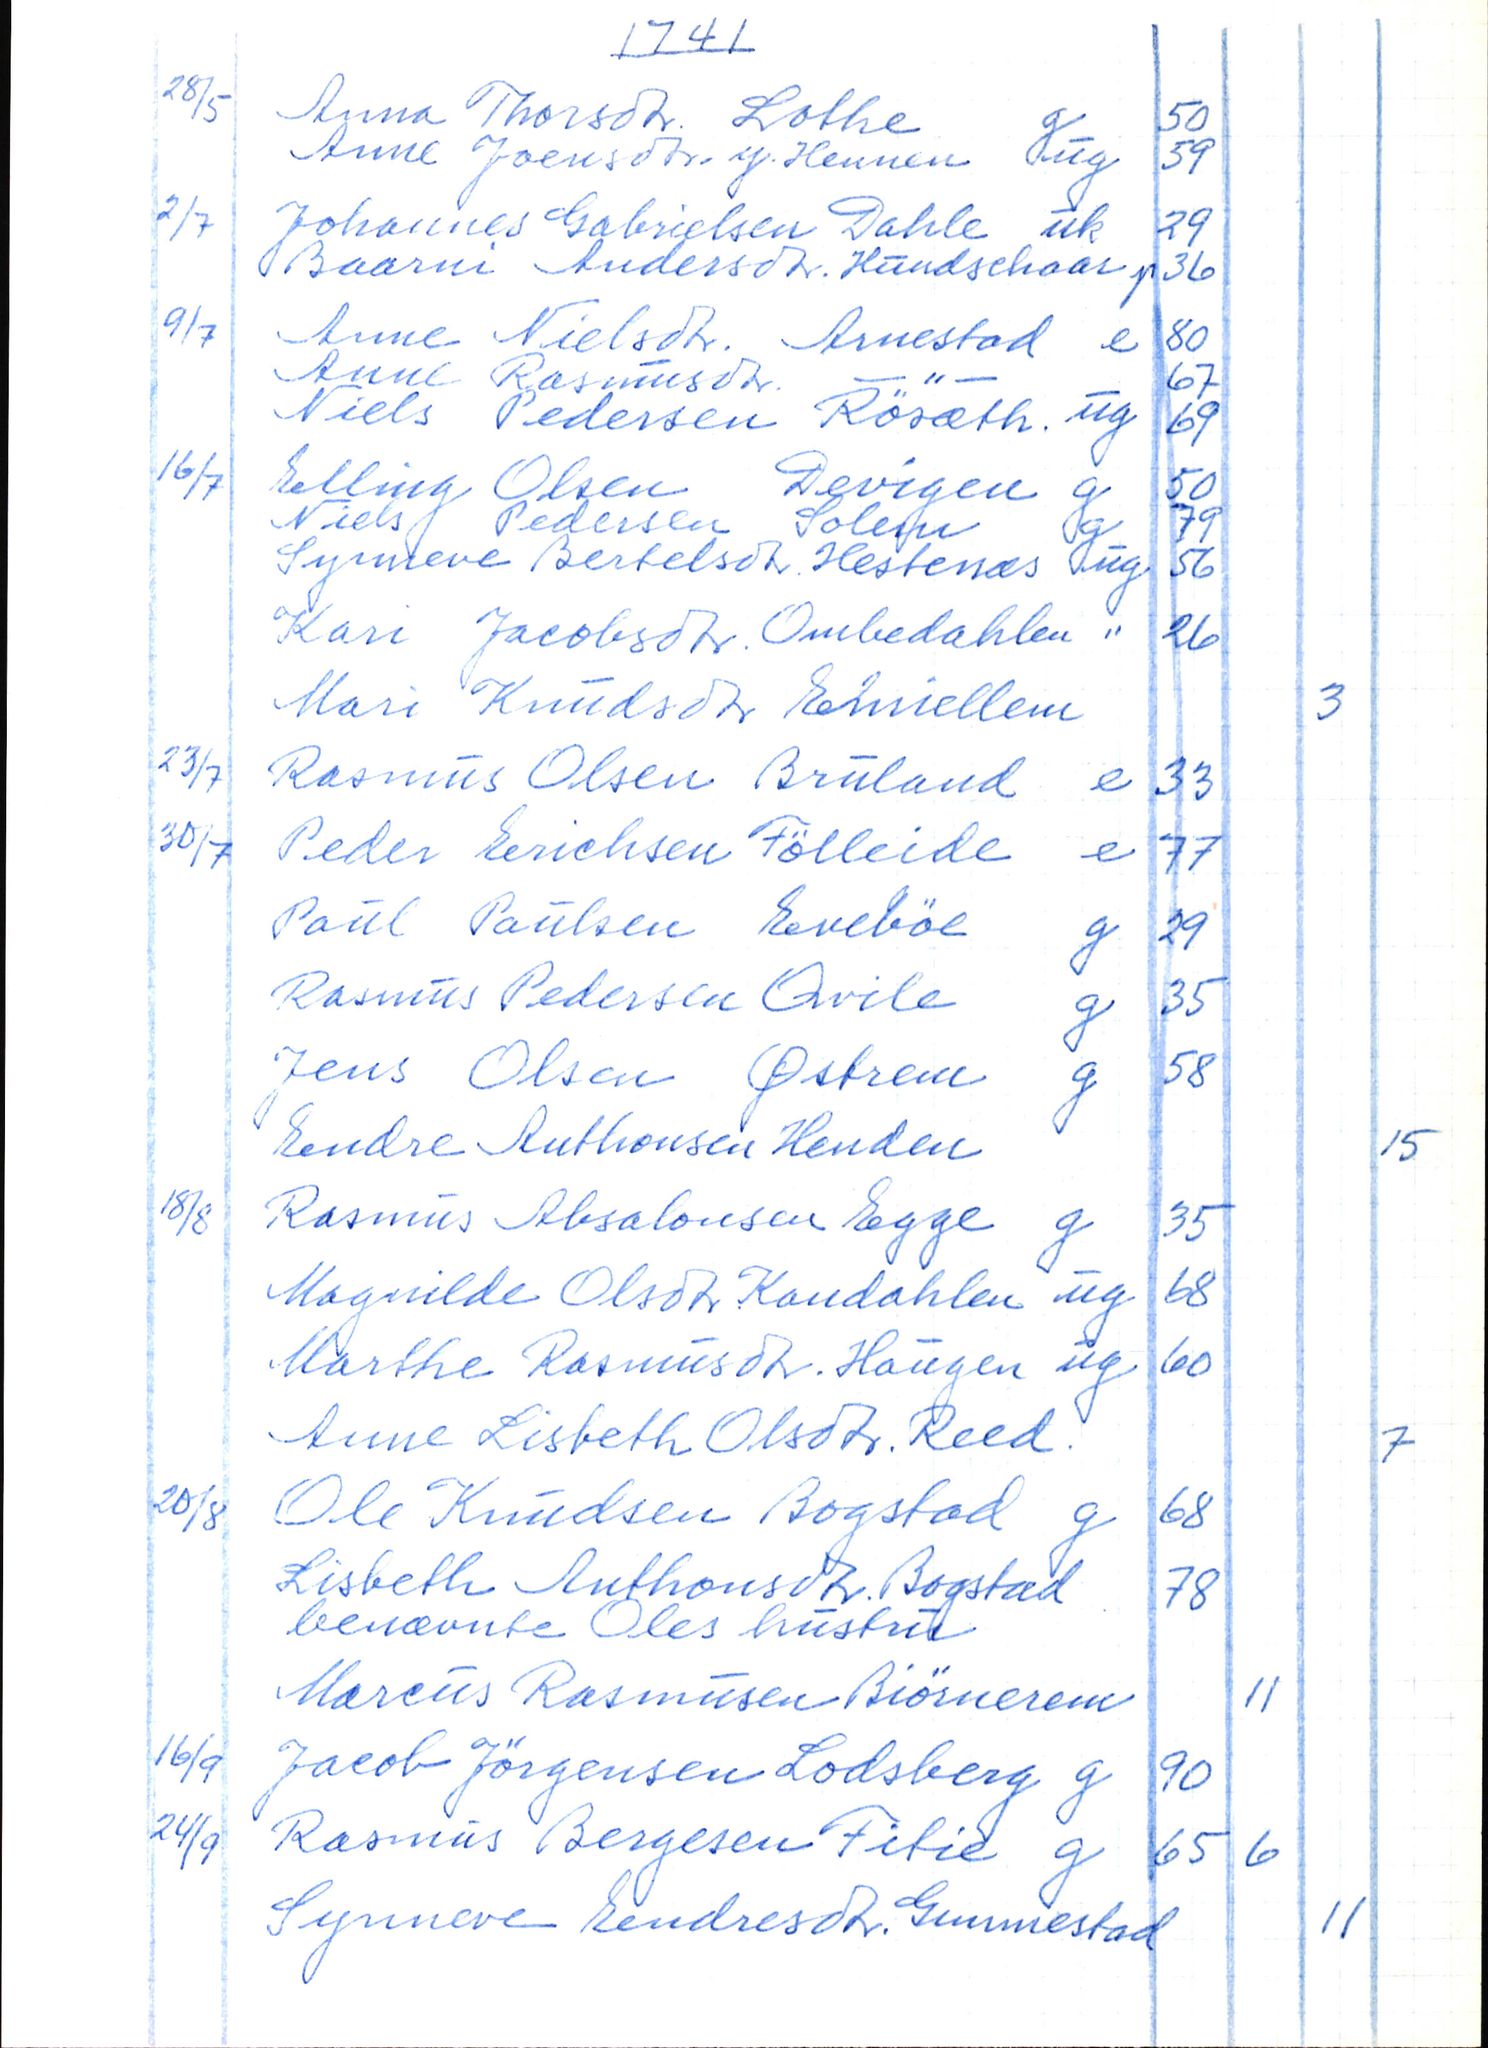 1741
28/5 Anna Thorsdtr. Lothe g 50
Anne Joensdtr. y. Hennen ug 59
2/7 Johannes Gabrielsen Dahle uk 29
Baarni Andersdtr. Hundschaar p 36
9/7 Anne Nielsdtr. Arnestad e 80
Anne Rasmusdtr. —"— 67
Niels Pedersen Rösæth. ug 69
16/7 Elling Olsen Devigen g 50
Niels Pedersen Solem g 79
Synneve Bertelsdtr. Hestenæs ug 56
Kari Jacobsdtr. Ombedahlen " 26
Mari Knudsdtr 3
23/7 Rasmus Olsen Bruland e 33
30/7 Peder Erichsen Fölleide e 77
Paul Paulsen Eveböe g 29
Rasmus Pedersen Qvile g 35
Jens Olsen Østrem g 58
Endre Anthonsen Henden 15
18/8 Rasmus Absalonsen Egge g 35
Magnilde Olsdtr. Kandahlen ug 68
Marthe Rasmusdtr. Haugen ug 60
Anne Lisbeth Olsdtr. Reed. 7
20/8 Ole Knudsen Bogstad g 68
Lisbeth Anthonsdtr. Bogstad 78
benævnte Oles hustru
Marcus Rasmusen Biörnerem 11
16/9 Jacob Jörgensen Lodsberg g 90
24/9 Rasmus Bergesen Fitie g 65 6
Synneve Endresdtr. Gunmestad 11